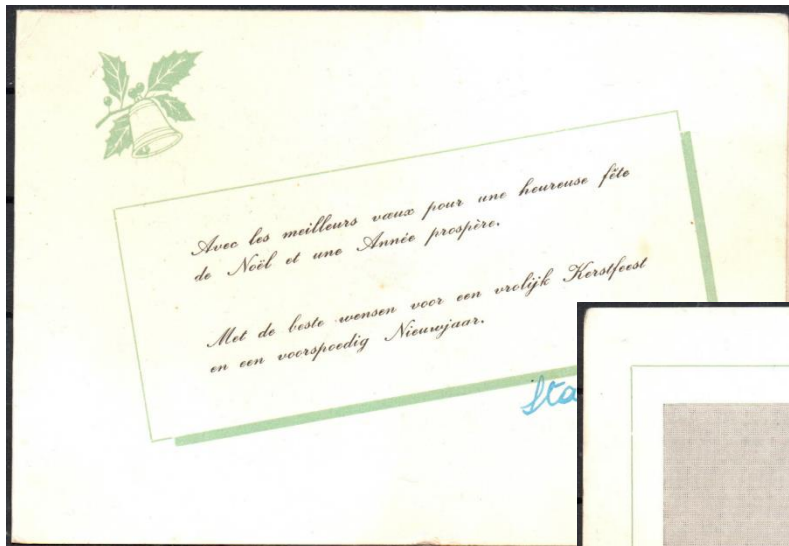 Avec les meilleurs vœux pour une heureuse fête
de Noël et une Année prospère.
Met de beste wensen voor een vrolijk Kerstfeest
en een voorspoedig Nieuwjaar.
Sta